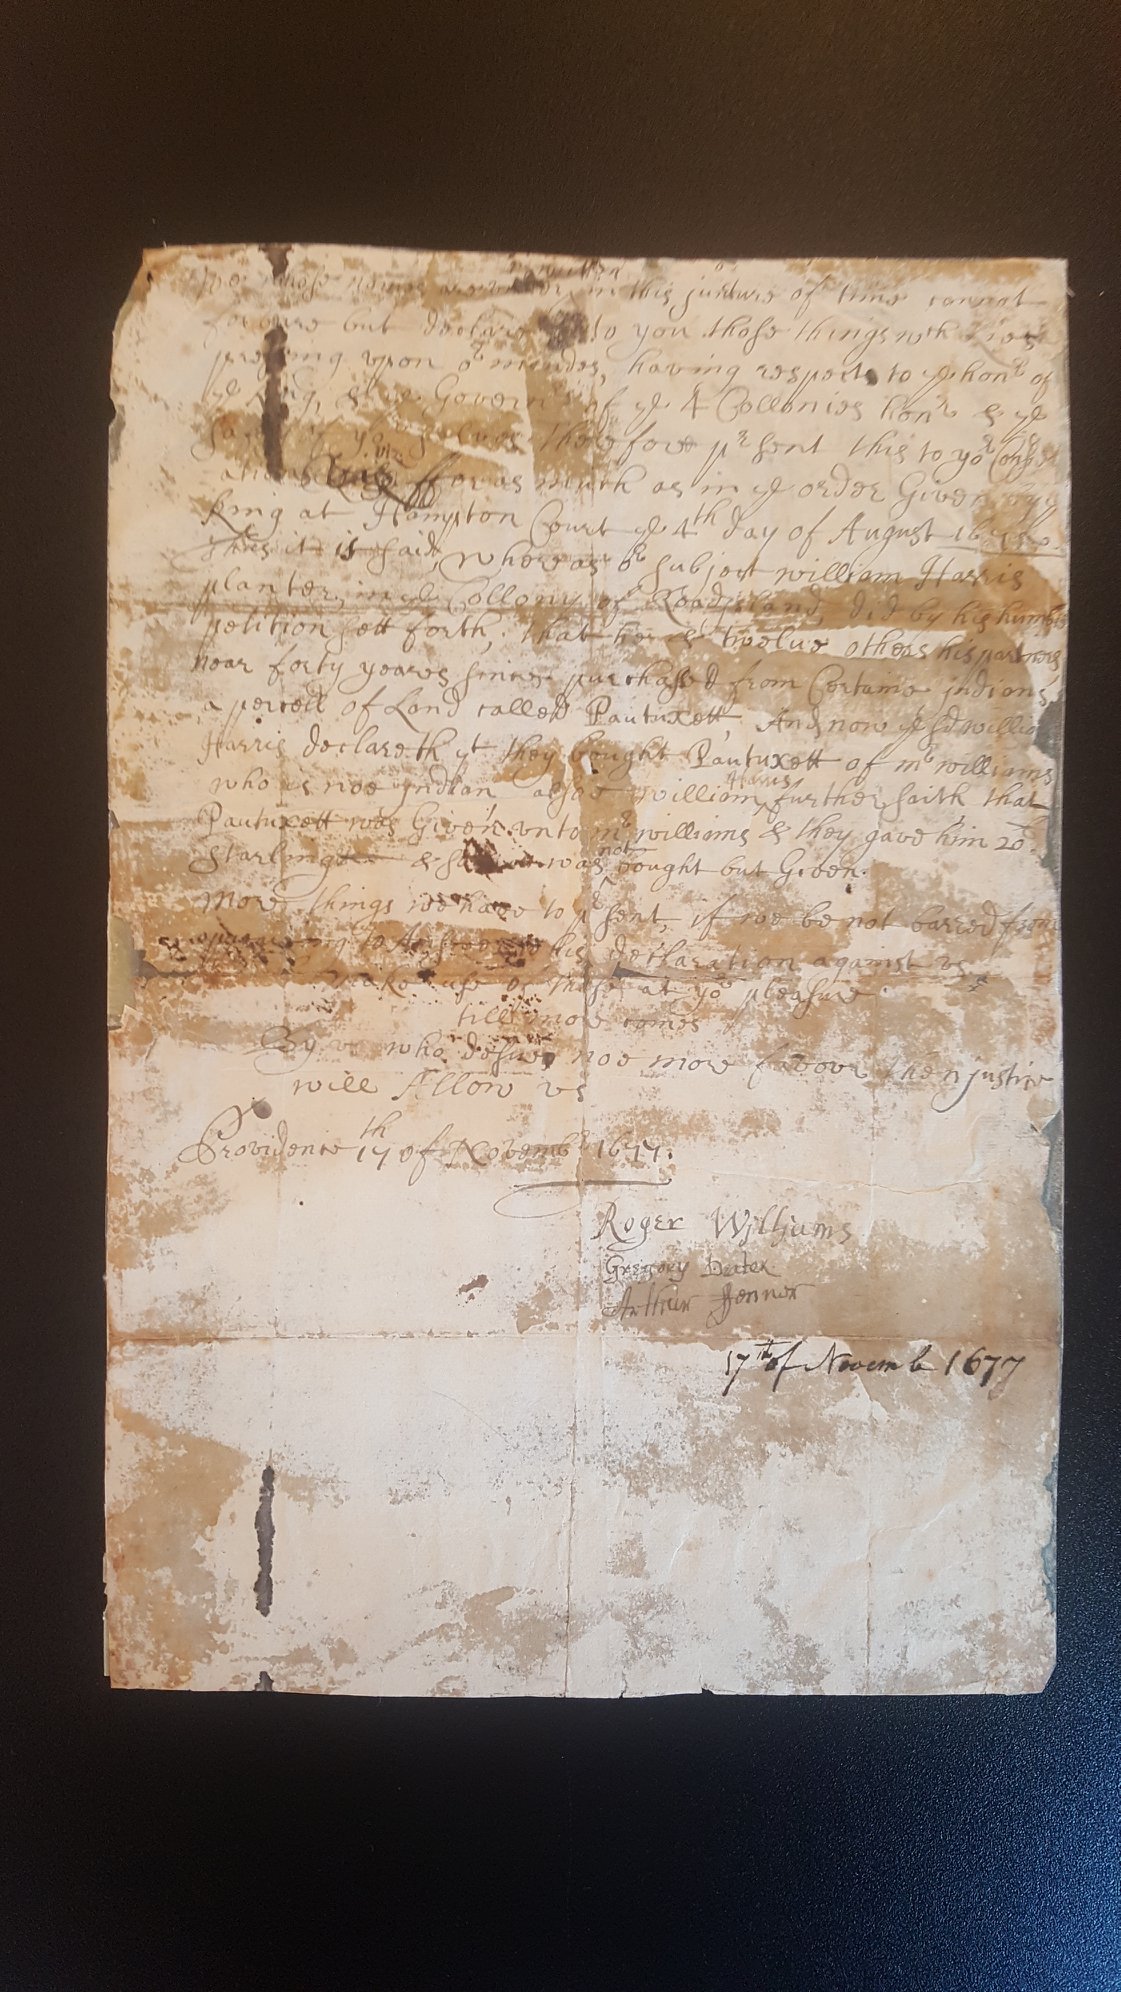 we whose names are under written in this juncture of time cannot
but declare to you those things wch lies
pressing upon or mindes, having respect to ye honr of
ye King, & ye Governrs of ye 4 Collonies honr & ye
therefore prsent this to yor
viz
fforasmuch as in ye order Given by ye
King at Hampton Court ye 4th day of August
thus it is said, whereas or subject william Harris
planter, in ye Collony of Roadjsland, did by his humble
petition sett forth, that hee & twelue others his partners
near forty yeares since purchassed from Certaine jndians,
a percell of Land called Pautuxett, And now ye sd william
Harris declareth yt they bought Pautuxett of mr williams
who is noe jndian alsoe william Harris further saith that
Pautuxett was Given vnto mr williams & they gave him 20li
starling & was not bought but Given.
More things we have to prsent, if we be not barred from
to Answer his declaration against vs
make use of these at yor pleasure
till more comes
By vs who desire noe more favour then justice
will Allow vs
Providence 17th of Novembr 1677.
Roger Williams
Gregory Dexter
Arthur Fenner
17th of Novemb 1677